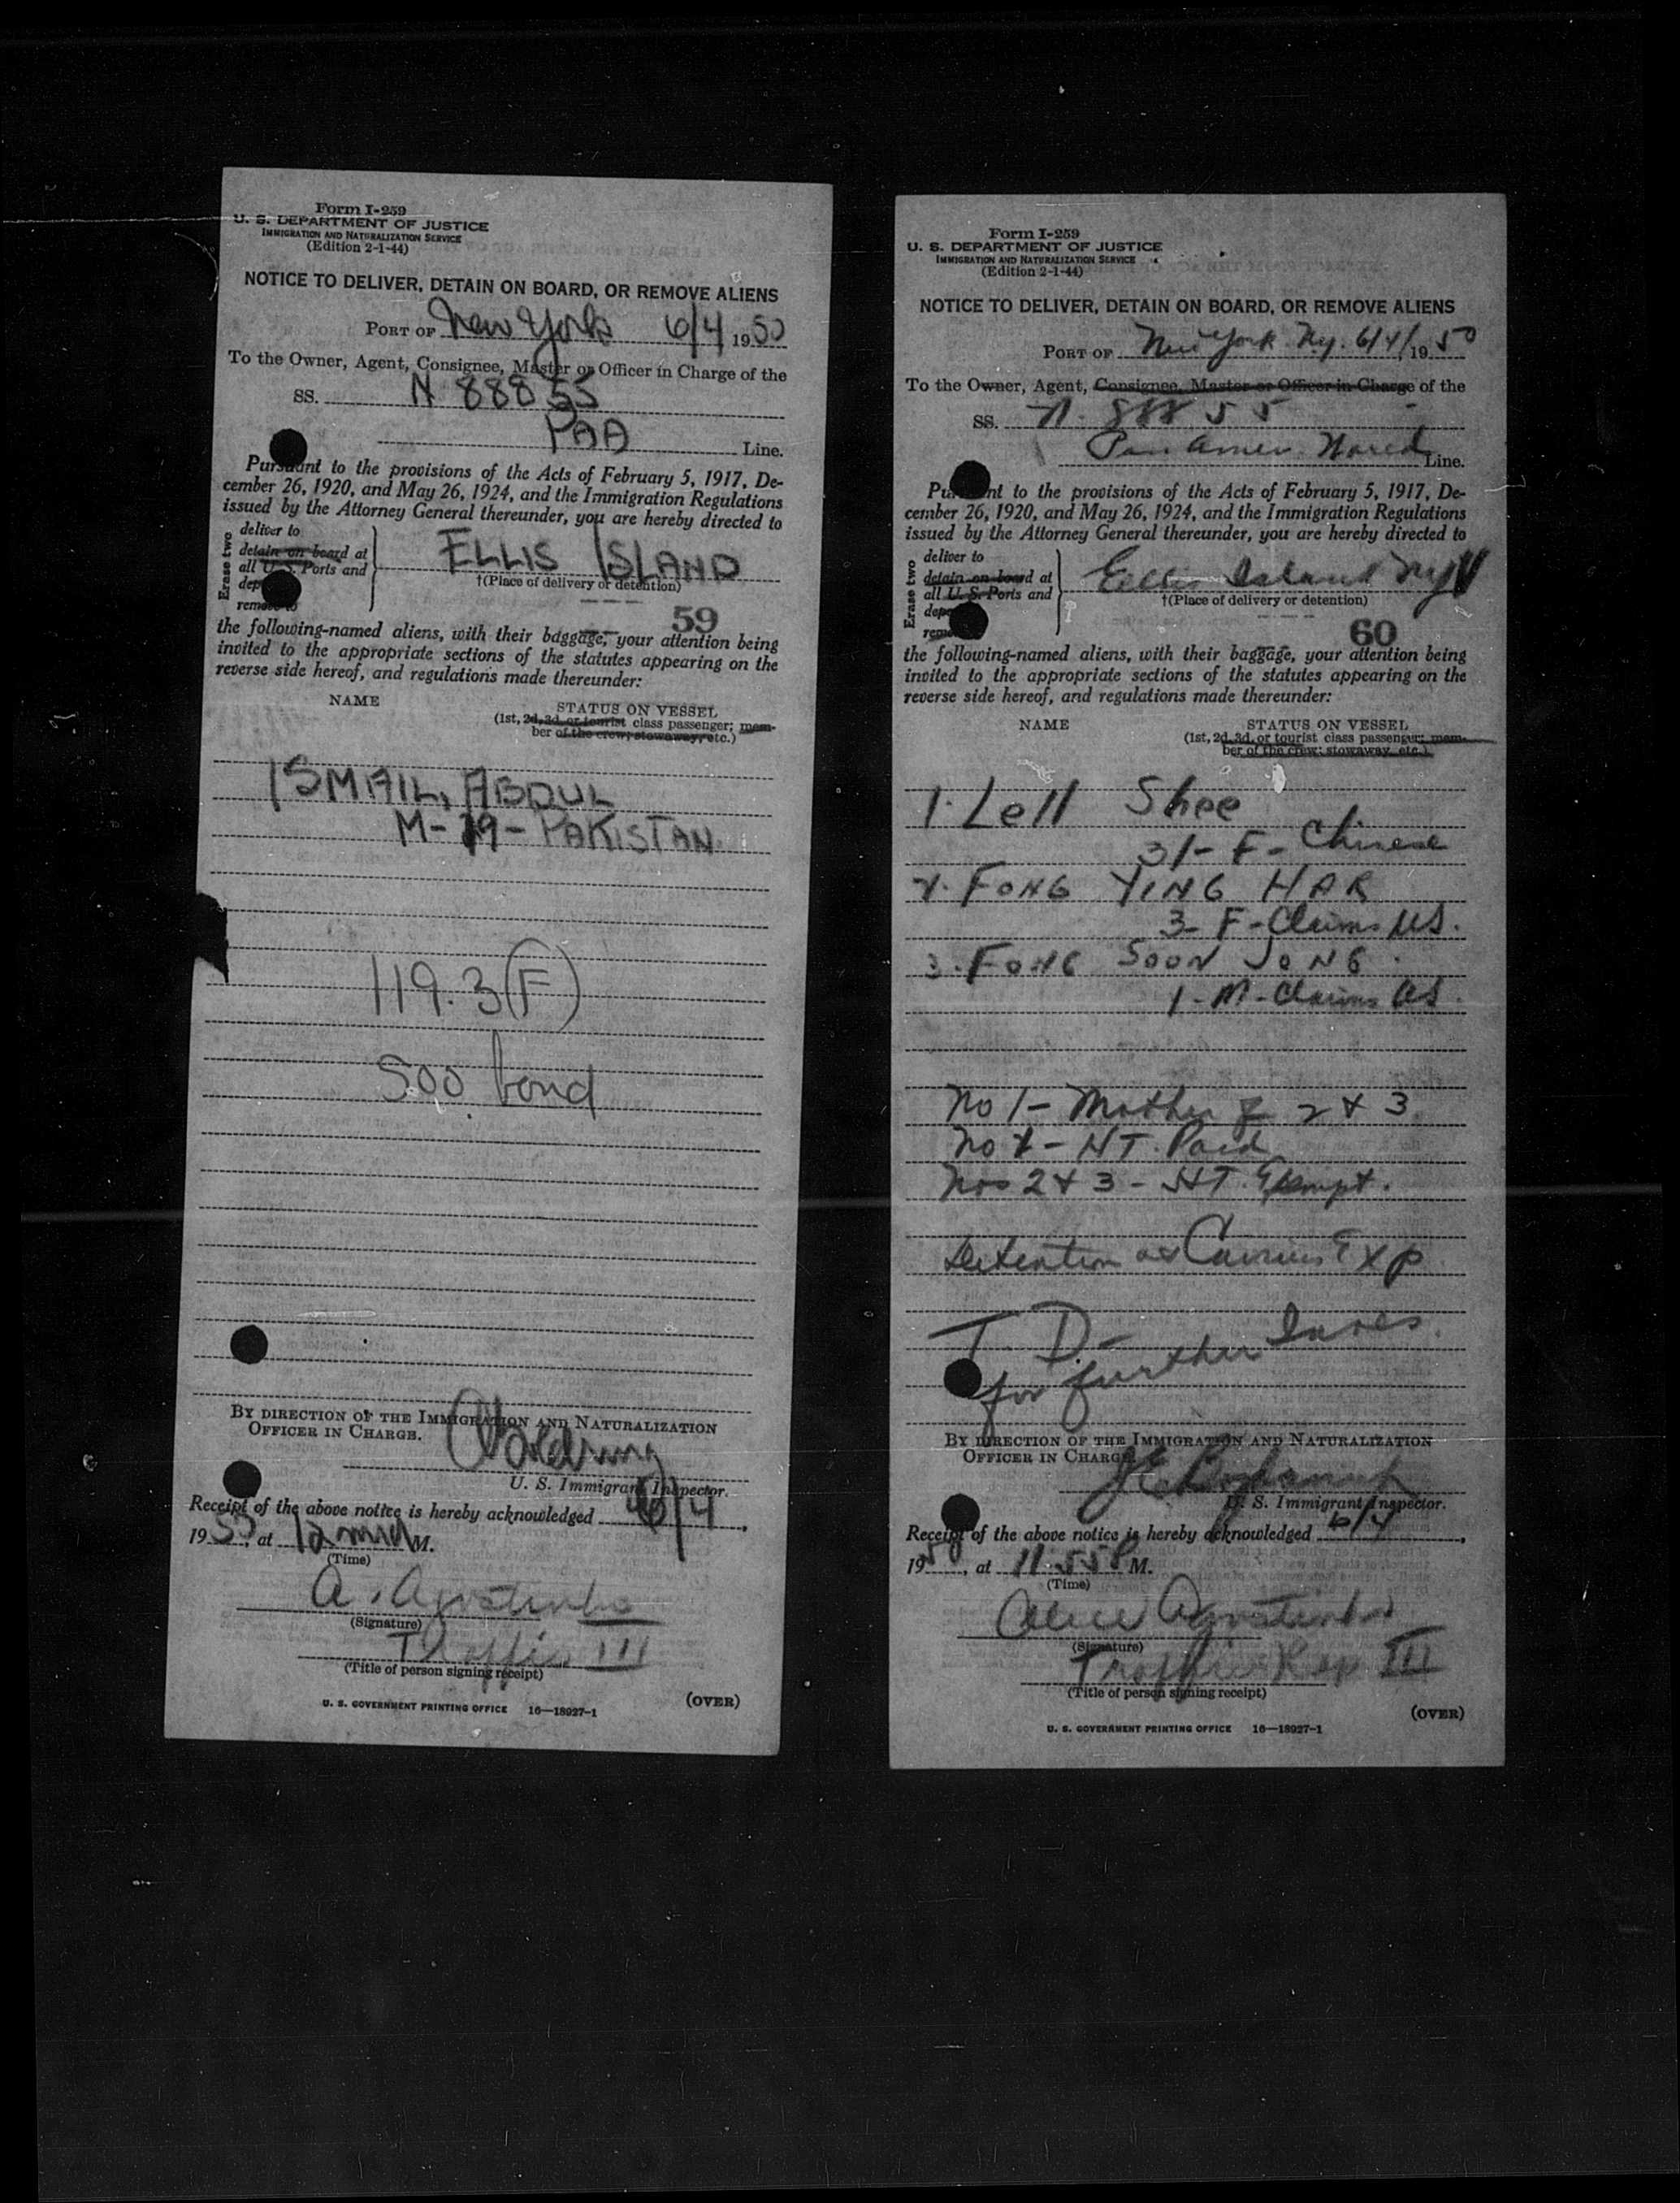 Form I-259
U. S. DEPARTMENT OF JUSTICE
IMMIGRATION AND NATURALIZATION SERVICE
(Edition 2-1-44)
NOTICE TO DELIVER, DETAIN ON BOARD, OR REMOVE ALIENS
PORT OF New York 6/4 1950
To the Owner, Agent, Consignee, Master or Officer in Charge of the
SS. N 88855
PAA Line.
Pursuant to the provisions of the Acts of February 5, 1917, De-
cember 26, 1920, and May 26, 1924, and the Immigration Regulations
issued by the Attorney General thereunder, you are hereby directed to
Erase two
deliver to
detain on board at
all U. S. Ports and
dep
remove to
ELLIS ISLAND
†(Place of delivery or detention)
59
the following-named aliens, with their baggage, your attention being
invited to the appropriate sections of the statutes appearing on the
reverse side hereof, and regulations made thereunder:
NAME STATUS ON VESSEL
(1st, 2d, 3d, or tourist class passenger; mem-
ber of the crew; stowaway, etc.)
ISMAIL, ABDUL
M- 19 - PAKISTAN
119.3(F)
500 bond
BY DIRECTION OF THE IMMIGRATION AND NATURALIZATION
OFFICER IN CHARGE.
U. S. Immigrant Inspector.
Receipt of the above notice is hereby acknowledged 6/4,
1950, at 12 mid M.
(Time)
A. Agostinho
(Signature)
Traffic III
(Title of person signing receipt)
U. S. GOVERNMENT PRINTING OFFICE 16—18927-1 (OVER)
Form I-259
U. S. DEPARTMENT OF JUSTICE
IMMIGRATION AND NATURALIZATION SERVICE
(Edition 2-1-44)
NOTICE TO DELIVER, DETAIN ON BOARD, OR REMOVE ALIENS
PORT OF New York Ny. 6/4/1950
To the Owner, Agent, Consignee, Master or Officer in Charge of the
SS. N. 88855
Pan Amer. Line.
Pursuant to the provisions of the Acts of February 5, 1917, De-
cember 26, 1920, and May 26, 1924, and the Immigration Regulations
issued by the Attorney General thereunder, you are hereby directed to
Erase two
deliver to
detain on board at
all U. S. Ports and
dep
remo
Ellis Island NY
†(Place of delivery or detention)
60
the following-named aliens, with their baggage, your attention being
invited to the appropriate sections of the statutes appearing on the
reverse side hereof, and regulations made thereunder:
NAME STATUS ON VESSEL
(1st, 2d, 3d, or tourist class passenger; mem-
ber of the crew; stowaway, etc.)
1. Lell Shee
31 - F - Chinese
2. FONG YING HAR
3 - F - Claims US.
3. FONG SOON JONG
1 - M - Claims US.
No 1 - Mother of 2 & 3
No 1 - HT. Paid
Nos 2 & 3 - HT. Exempt.
Detention at Carriers Exp
T. D. -
for further Inves.
BY DIRECTION OF THE IMMIGRATION AND NATURALIZATION
OFFICER IN CHARGE.
U. S. Immigrant Inspector.
Receipt of the above notice is hereby acknowledged 6/4,
1950, at 11:55 P M.
(Time)
Alice Agostinho
(Signature)
Traffic Rep III
(Title of person signing receipt)
U. S. GOVERNMENT PRINTING OFFICE 16—18927-1
(OVER)